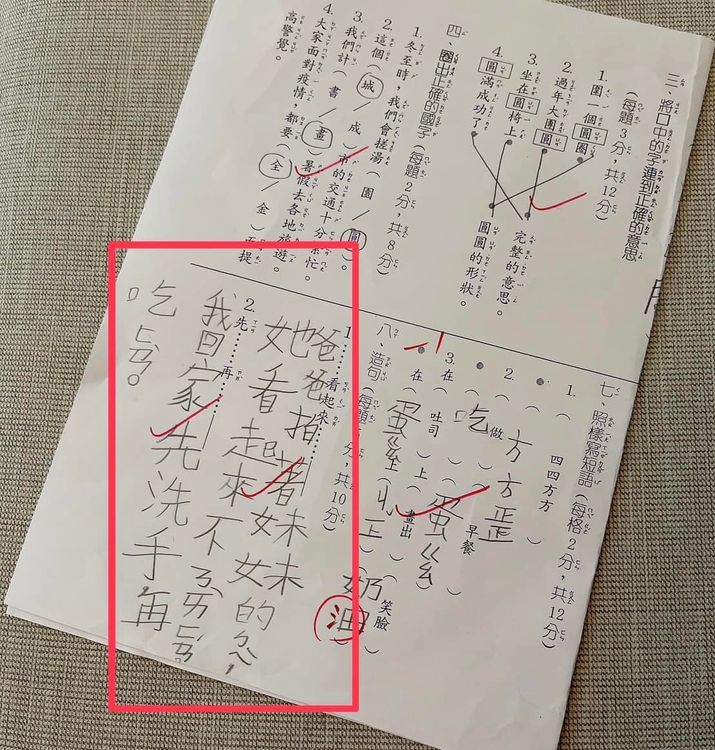 三、將口中的字連到正確的意思
(每題3分,共12分)
1. 圍一個圓圈
2. 過年大團圓
3. 坐在圓椅上
4. 圓滿成功了
完整的意思。
圓圓的形狀。
四、圈出正確的國字(每題2分,共8分)
1. 冬至時,我們會搓湯(園/圓)。
2. 這個(城/成)市的交通十分繁忙。
3. 我們計(書/畫)暑假去各地旅遊。
4. 大家面對疫情,都要(全/金)面提
高警覺。
七、照樣寫短語(每格2分,共12分)
1. ( )四四方方( )
方方
2. 吃 做 蛋 早餐
3. 在(吐司)上(畫出)(笑臉)
在(蛋ㄍㄠ)上 奶油
八、造句(每題5分,共10分)
1. ……看起來……
爸爸 著妹妹的
她看起來不
2. 先……再……
我回家先洗手,再
吃